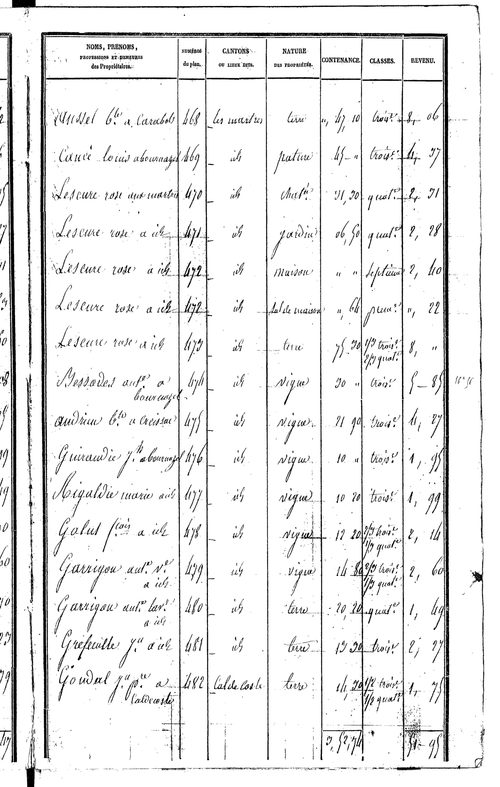 NOMS, PRENOMS, PROFESSIONS ET DEMEURES des Propriétaires. NUMÉROS du plan. CANTONS OU LIEUX DITS. NATURE DES PROPRIÉTÉS. CONTENANCE. CLASSES. REVENU.
Aussel Bte a Carabols 468 Les martres terre „ 47, 10 trois.e 8, 06
Caucé louis abournazel 469 id pature 45 „ trois.e 4, 37
Lescure rose aux martres 470 id chat.re 31, 30 quat.e 2, 31
Lescure rose a id 471 id jardin 06, 50 quat.e 2, 28
Lescure rose a id 472 id maison „ „ septieme 2, 40
Lescure rose a id 472 id sal de maison „ 64 prem.e „ 22
Lescure rose a id 473 id terre 75 30 1/3 trois.e 2/3 quat.e 8, „
Bessodes ant.ne a bournazel 474 id vigne 30 „ trois.e 5 - 85
andrieu Bte a Creissac 475 id vigne 21 90 trois.e 4, 27
Guiraudie J.h abournazel 476 id vigne 10 „ trois.e 1, 95
Rigaldie marie a id 477 id vigne 10 20 trois.e 1, 99
Galut f.cois a id 478 id vigne 12 20 2/3 trois.e 1/3 quat.e 2, 14
Garrigou ant.ne v.e a id 479 id vigne 14 80 2/3 trois.e 1/3 quat.e 2, 60
Garrigou ant.ne a id 480 id terre 20, 20 quat.e 1, 49
Grefeuille J.n a id 481 id terre 13 30 trois.e 2, 27
Goudal J.n p.re a Caldecoste 482 Cal de Coste terre 14, 30 1/2 trois.e 1/2 quat.e 1, 75
3, 52, 74 51 - 95